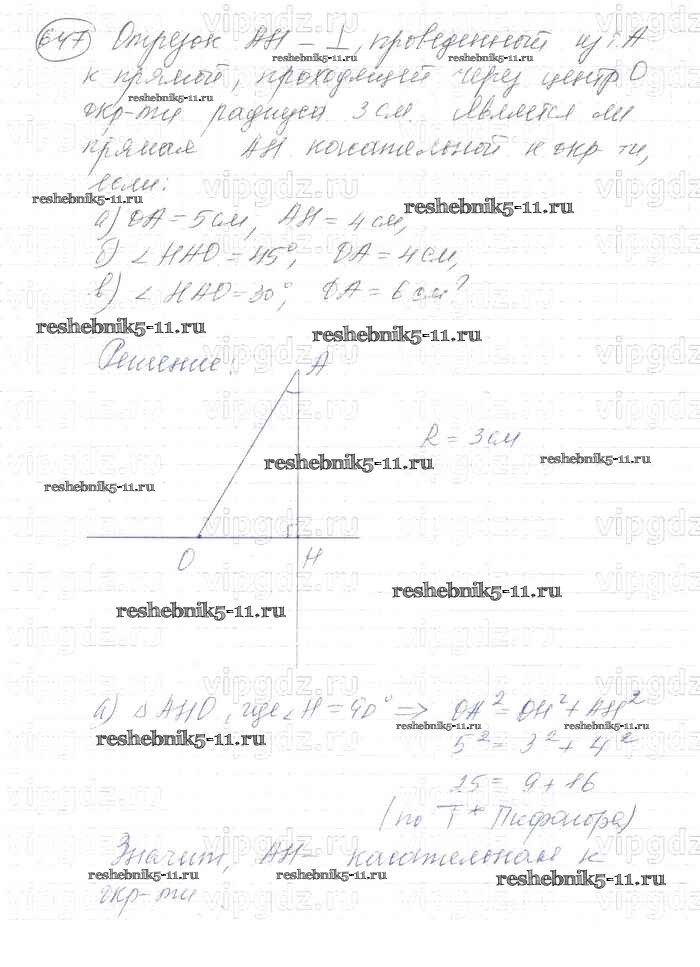 647 Отрезок АН – ⊥, проведенный из т. А
к прямой, проходящей через центр О
окр-ти радиуса 3 см. Является ли
прямая АН касательной к окр-ти,
если:
а) ОА = 5 см, АН = 4 см,
б) ∠ НАО = 45°, ОА = 4 см,
в) ∠ НАО = 30°, ОА = 6 см?
Решение:
А
R = 3 см
О Н
а) △ АНО, где ∠ Н = 90° => ОА² = ОН² + АН²
5² = 3² + 4²
25 = 9 + 16
(по Т* Пифагора)
Значит, АН – касательная к
окр-ти
reshebnik5-11.ru
vipgdz.ru